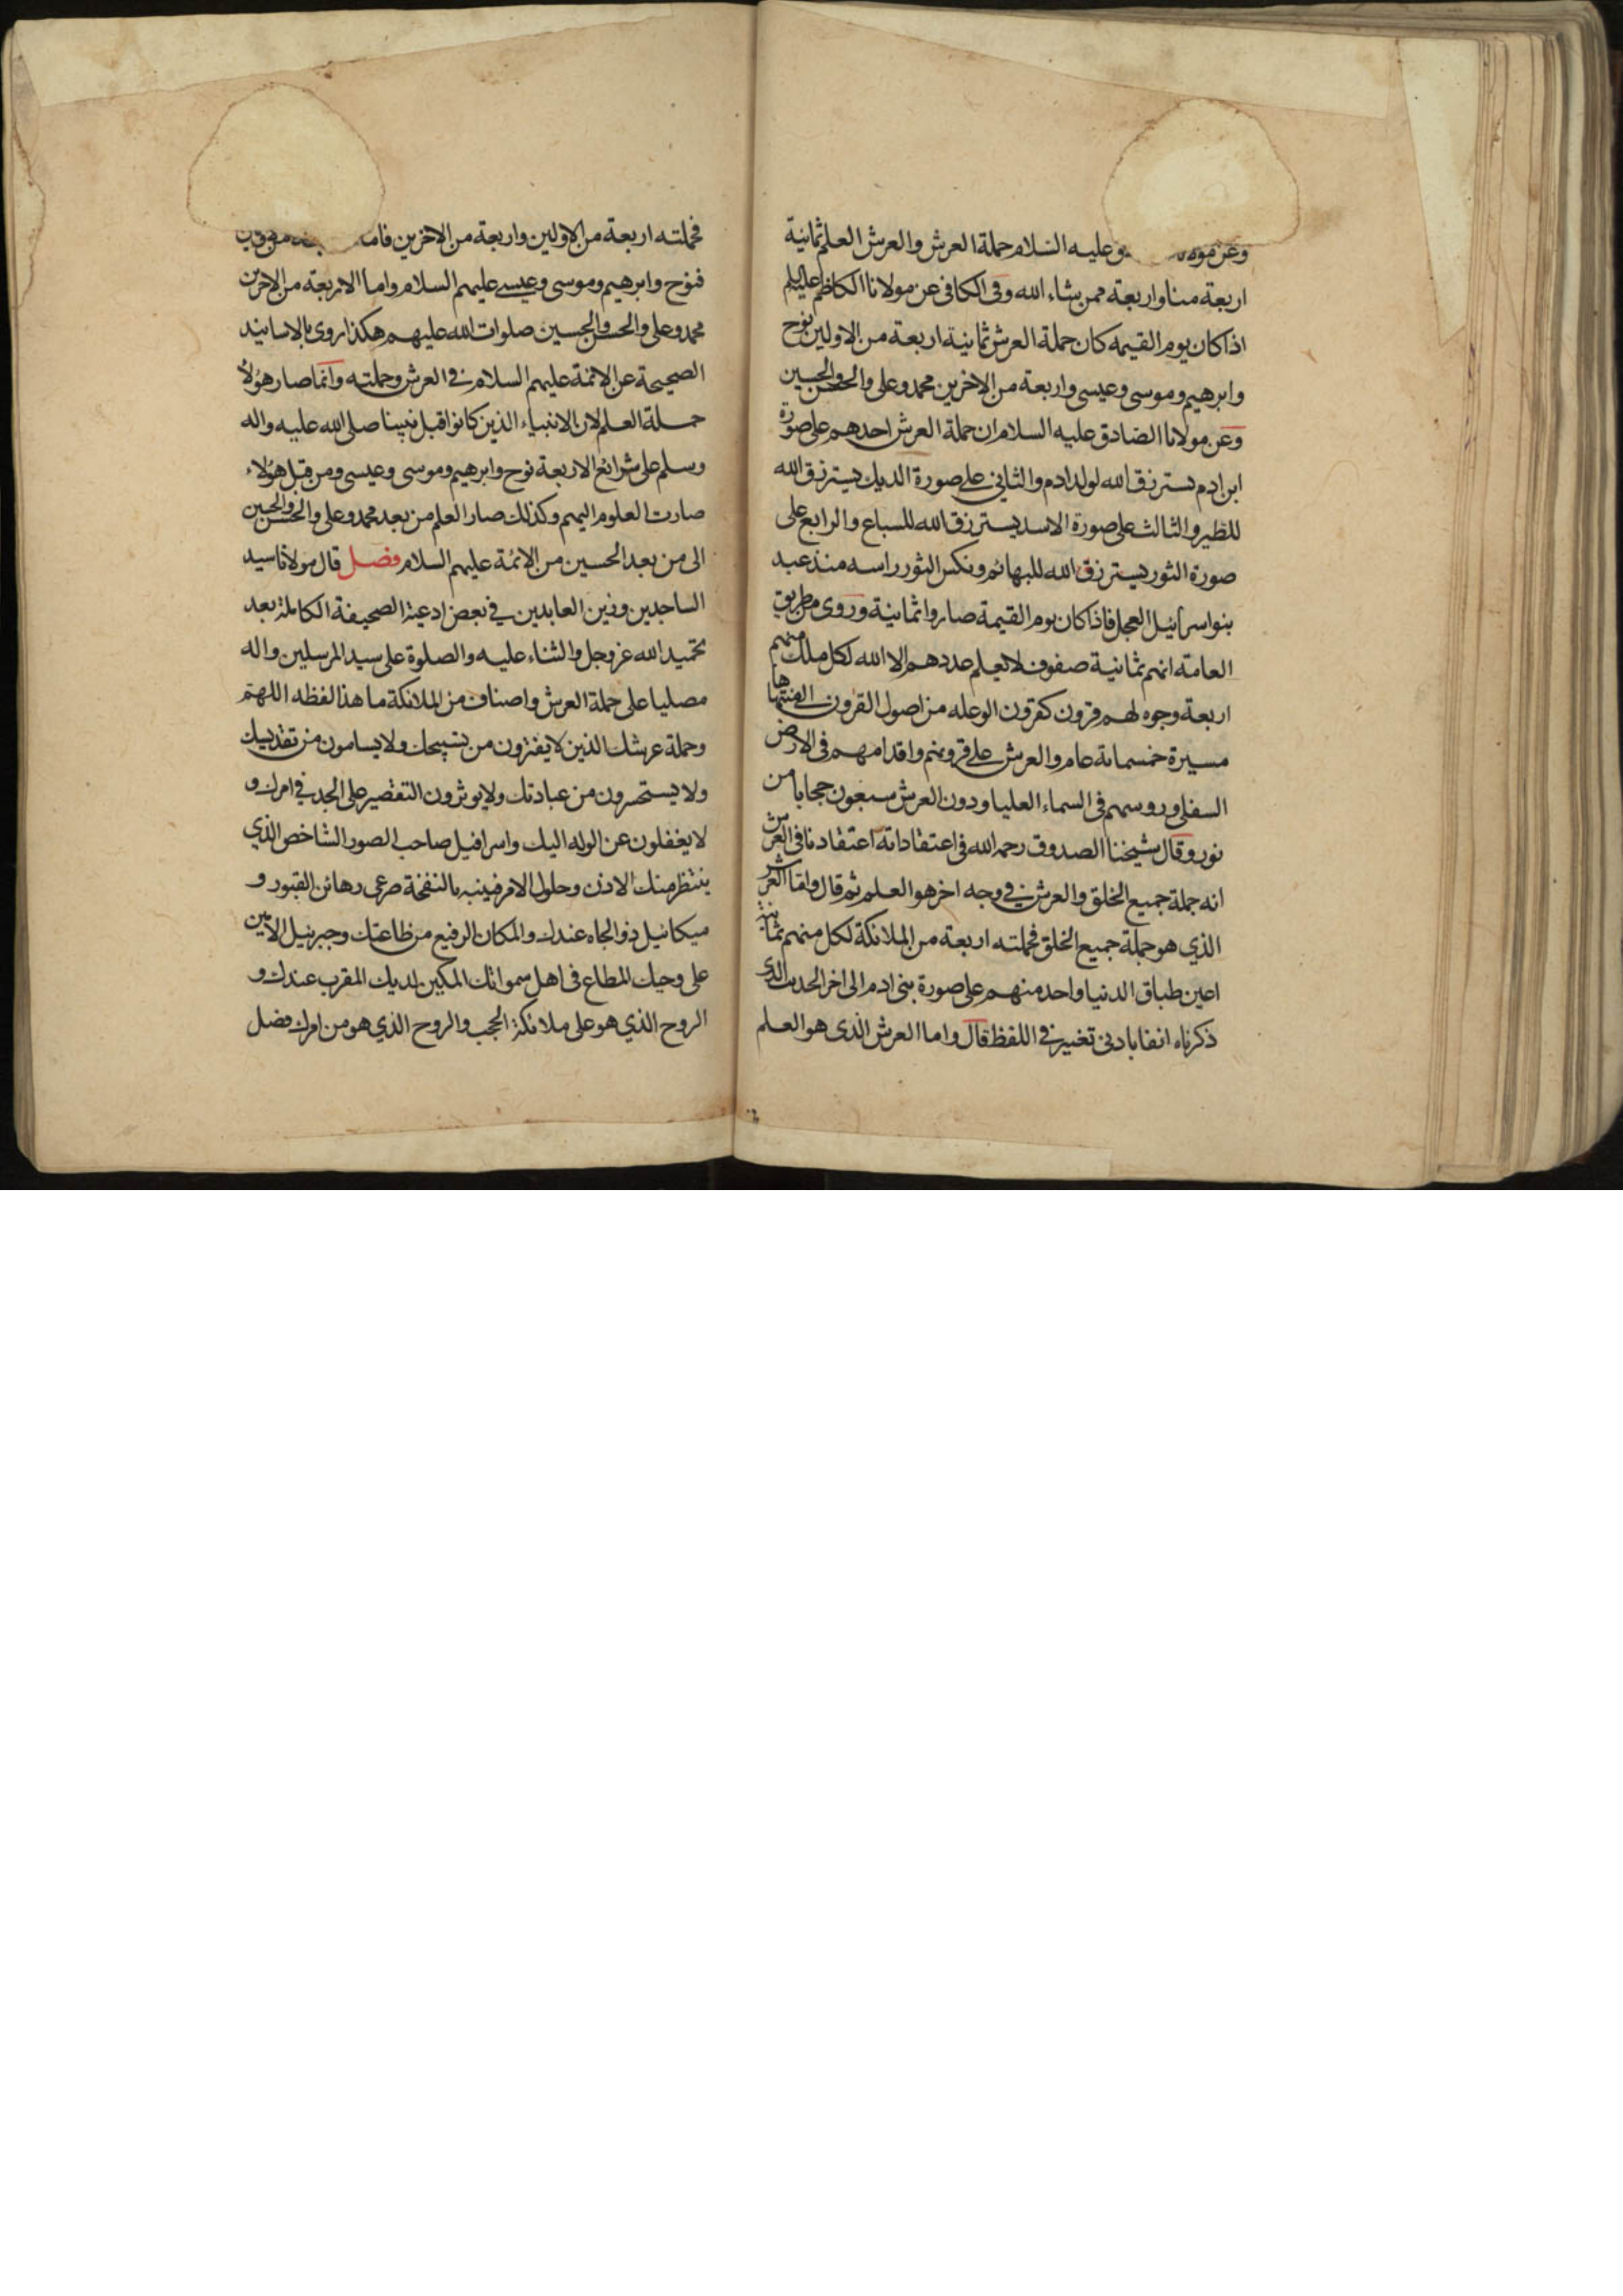 وعن مولا و عليه السلام حملة العرش والعرش العلم ثمانية
اربعة منا واربعة ممن يشاء الله وفى الكافى عن مولانا الكاظم عليه السلام
اذا كان يوم القيمه كان حملة العرش ثمانية اربعة من الاولين نوح
وابرهيم وموسى وعيسى واربعة من الاخرين محمد وعلى والحسن والحسين
وعن مولانا الصادق عليه السلام ان حملة العرش احدهم على صورة
ابن ادم يسترزق الله لولد ادم والثانى على صورة الديك يسترزق الله
للطير والثالث على صورة الاسد يسترزق الله للسباع والرابع على
صورة الثور يسترزق الله للبهائم ونكس الثور راسه منذ عبد
بنو اسرائيل العجل فاذا كان يوم القيمة صاروا ثمانية وروى من طريق
العامة انهم ثمانية صفوف لا يعلم عددهم الا الله لكل ملك منهم
اربعة وجوه لهم قرون كقرون الوعله من اصول القرون الى منتهاها
مسيرة خمسماة عام والعرش على قرونهم واقدامهم فى الارض
السفلى ورؤسهم فى السماء العليا ودون العرش سبعون حجابا من
نور وقال شيخنا الصدوق رحمه الله فى اعتقاداته اعتقادنا فى العرش
انه جملة جميع الخلق والعرش فى وجه اخر هو العلم ثم قال واما العرش
الذي هو جملة جميع الخلق فحملته اربعة من الملائكة لكل منهم ثمانية
اعين طباق الدنيا واحد منهم على صورة بنى ادم الى اخر الحديث الذى
ذكرناه انفا بادنى تغيير فى اللفظ قال واما العرش الذى هو العلم
فحملته اربعة من الاولين واربعة من الاخرين فاما
فنوح وابرهيم وموسى وعيسى عليهم السلام واما الاربعة من الاخرين
محمد وعلى والحسن والحسين صلوات الله عليهم هكذا روى بالاسانيد
الصحيحة عن الائمة عليهم السلام فى العرش وحملته وانما صار هؤلاء
حملة العلم لان الانبياء الذين كانوا قبل نبينا صلى الله عليه واله
وسلم على شرائع الاربعة نوح وابرهيم وموسى وعيسى ومن قبل هؤلاء
صارت العلوم اليهم وكذلك صار العلم من بعد محمد وعلى والحسن والحسين
الى من بعد الحسين من الائمة عليهم السلام فصل قال مولانا سيد
الساجدين وزين العابدين في بعض ادعية الصحيفة الكاملة بعد
تحميد الله عز وجل والثناء عليه والصلوة على سيد المرسلين واله
مصليا على حملة العرش واصناف من الملائكة ما هذا لفظه اللهم
وحملة عرشك الذين لا يفترون من تسبيحك ولا يسامون من تقديسك
ولا يستحسرون من عبادتك ولا يوثرون التقصير على الجد في امرك و
لا يغفلون عن الوله اليك واسرافيل صاحب الصور الشاخص الذي
ينتظر منك الاذن وحلول الامر فينبه بالنفخة صرعى رهائن القبور و
ميكائيل ذو الجاه عندك والمكان الرفيع من طاعتك وجبرئيل الامين
على وحيك المطاع فى اهل سمواتك المكين لديك المقرب عندك و
الروح الذي هو على ملائكة الحجب والروح الذي هو من امرك فصل